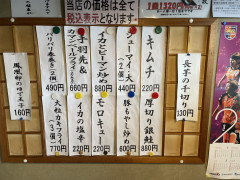 当店の価格は全て
税込表示となります
長芋の千切り
330円
キムチ
220円
厚切り銀鮭
880円
シューマイ(大)
(2個)
440円
豚もやし炒め
600円
イカとピーマン炒め
880円
モロキュー
440円
手羽先&
660円
イカの塩辛
220円
パリパリ春巻き(2個)
490円
大粒カキフライ
(3個)
770円
鳳凰卵のゆで玉子
160円